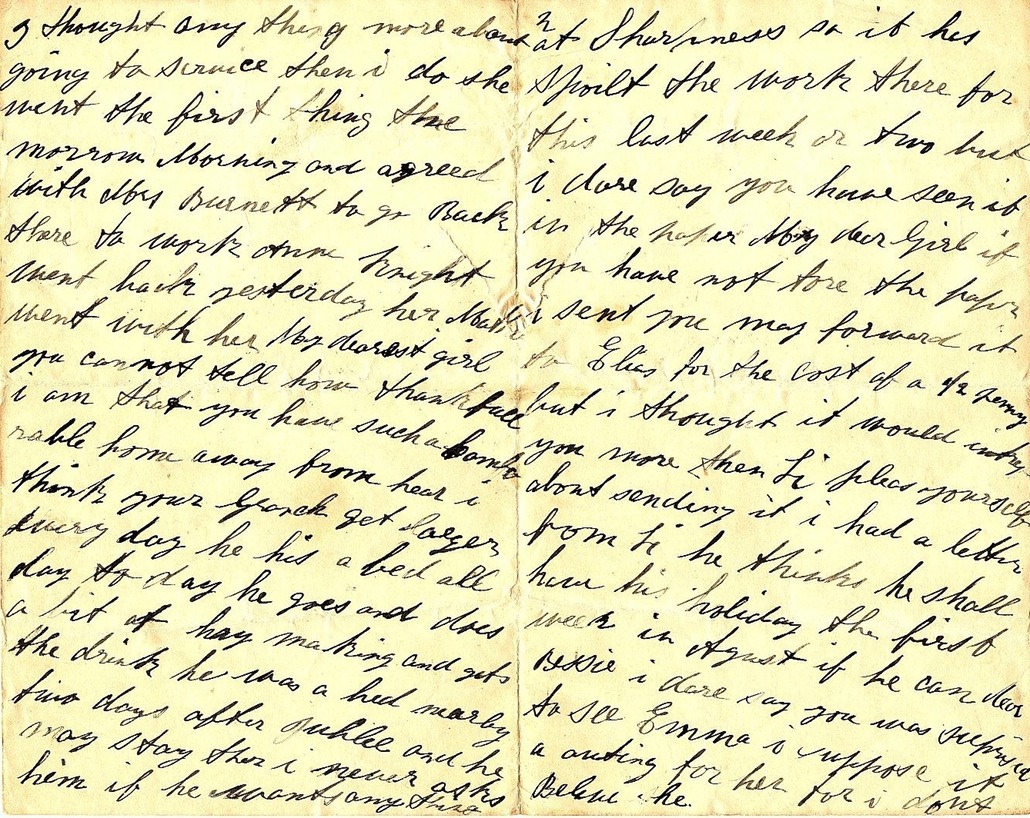 I thought any thing more about
going to service then i do she
went the first thing the
morrow Morning and agreed
with Mrs Burnett to go Back
there to work Anne Knight
went back yesterday her Mother
went with her My dearest girl
you cannot tell how thankfull
i am that you have such a comfo
rable home away from hear i
think your Granck get laegey
every day he his a bed all
day to day he goes and does
a bit of hay making and gets
the drink he was a bed nearby
two days after Jublee and he
may stay ther i never asks
him if he wants any thing
at Sharpness so it has
spoilt the work there for
this last week or two but
i dare say you have seen it
in the paper My dear Girl if
you have not tore the paper
i sent you may forward it
to Elias for the cost of a 1/2 penny
but i thought it would
you more then Li pleas yourself
about sending it i had a letter
from Li he thinks he shall
have his holiday the first
week in Agust if he can dear
Bessie i dare say you was
to see Emma i suppose it
a outing for her for i dont
Beleve he